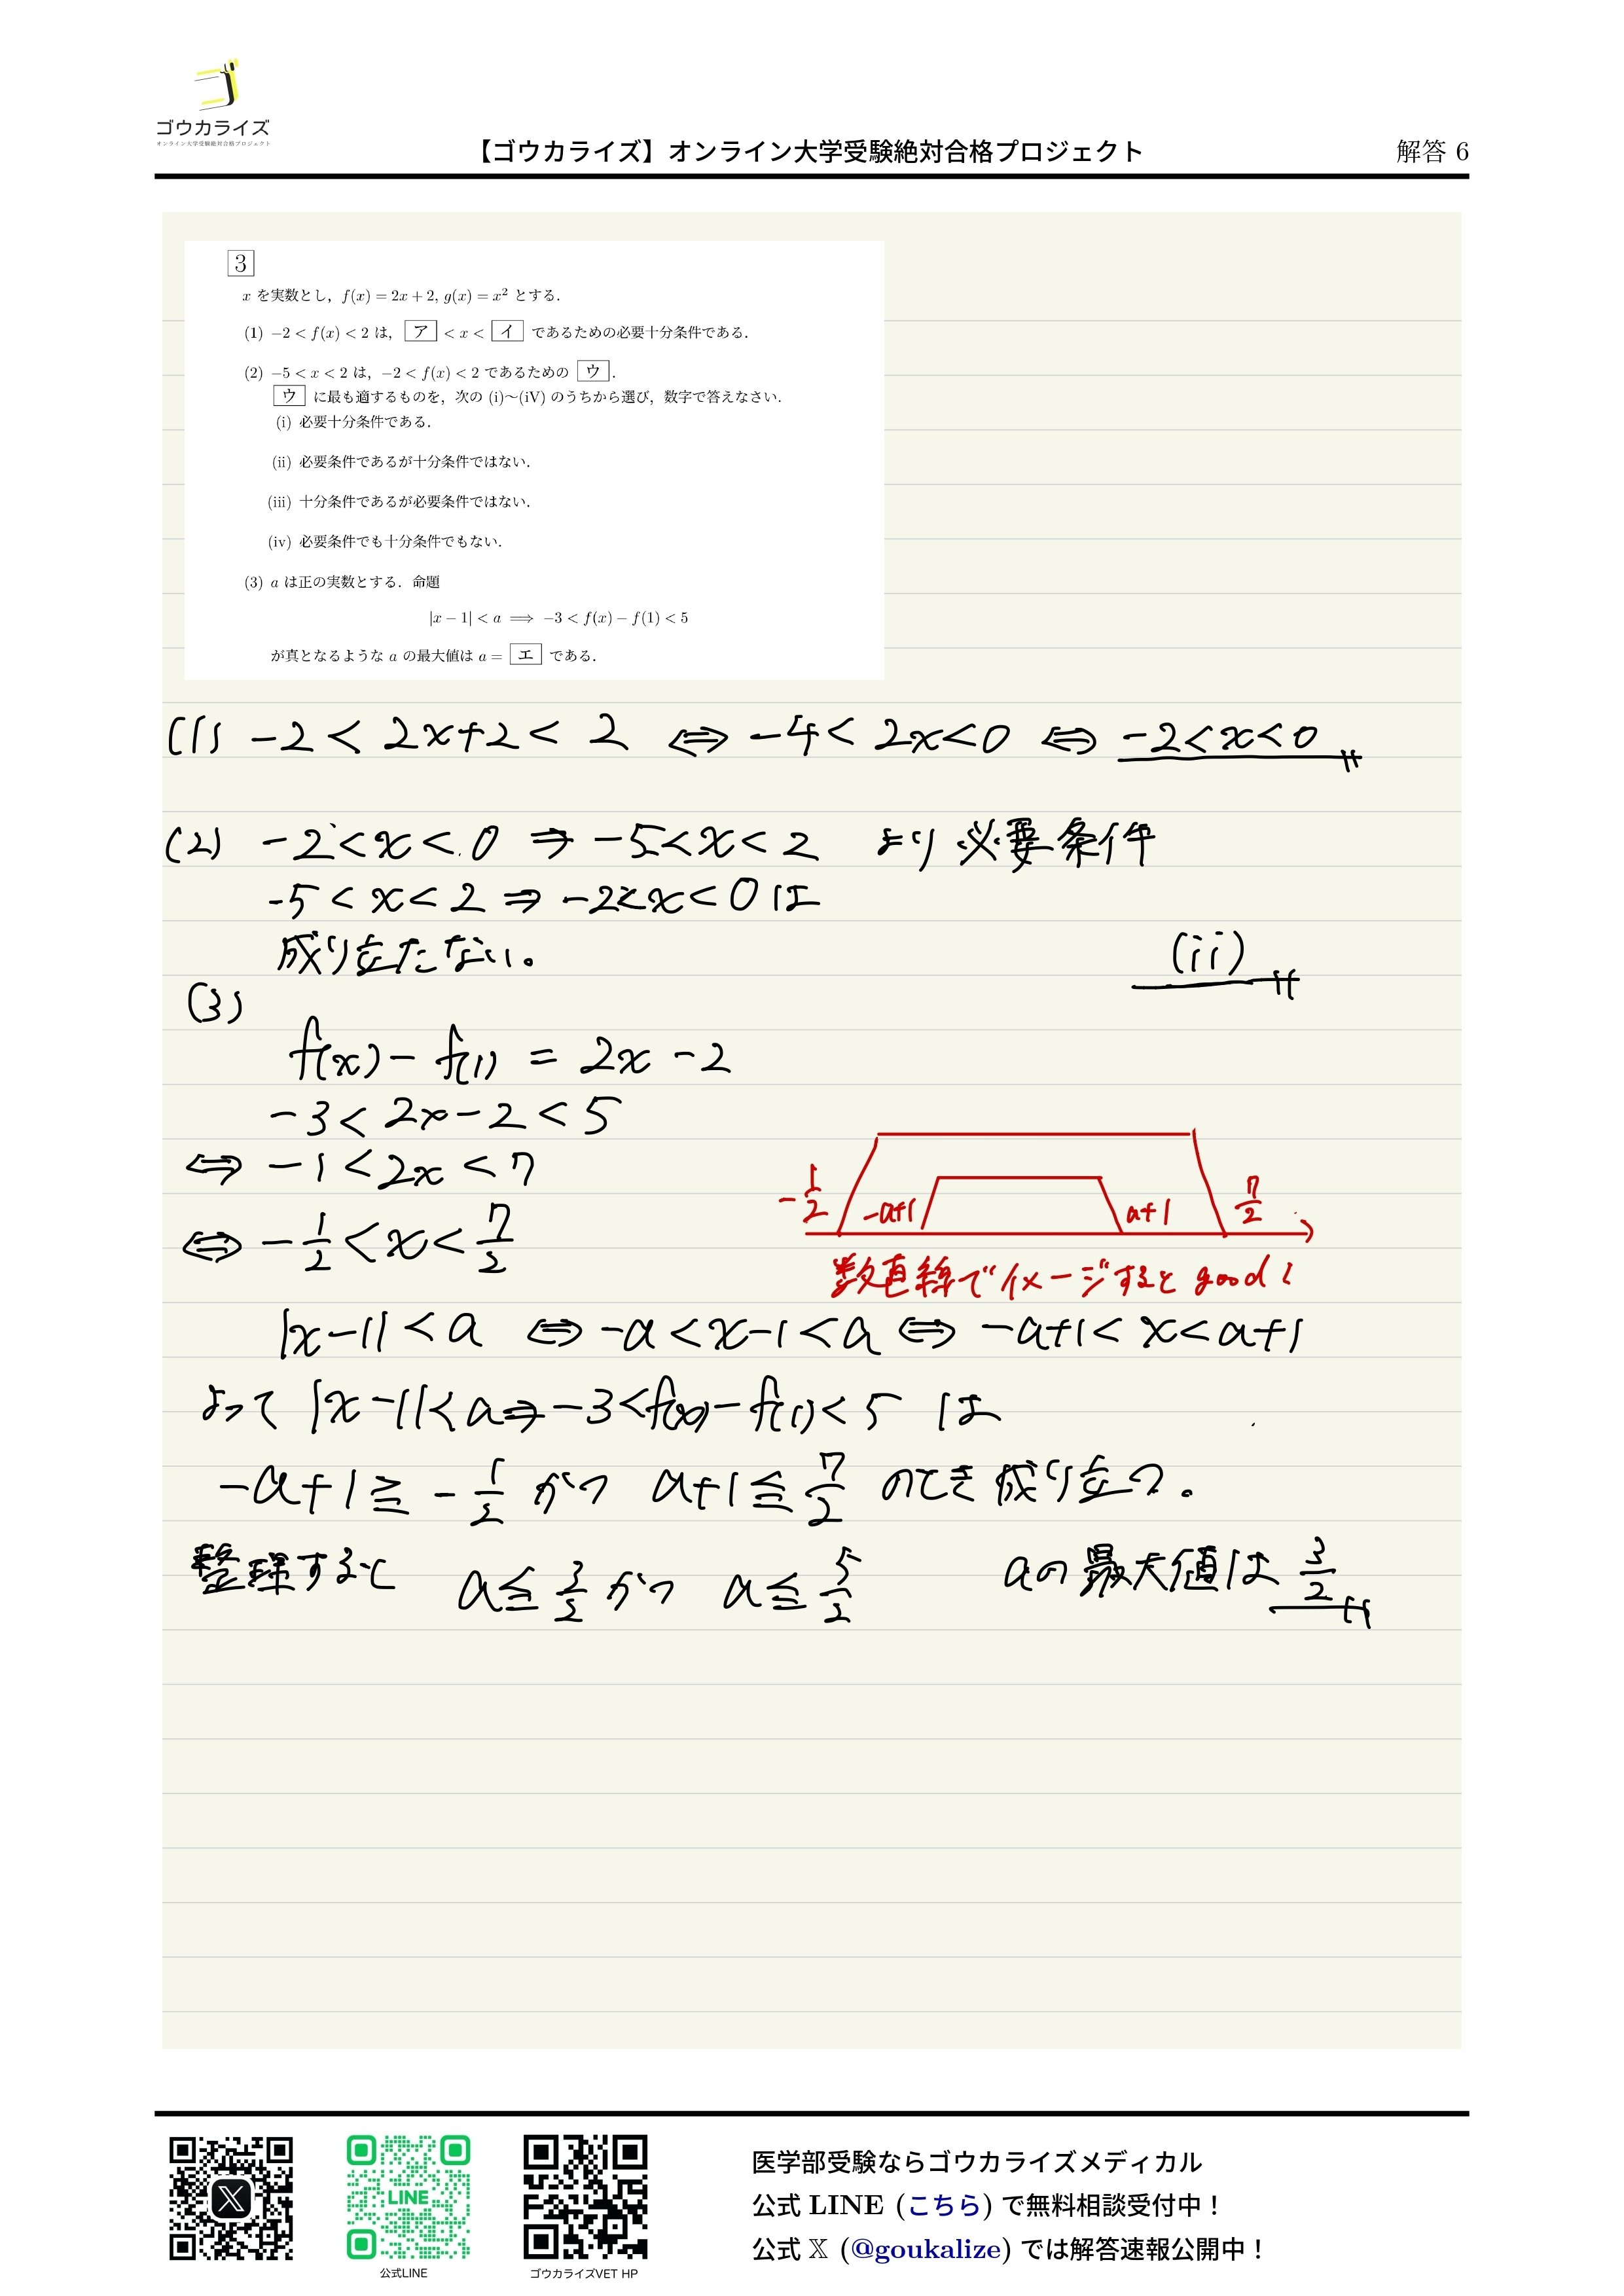 ゴウカライズ
オンライン大学受験絶対合格プロジェクト
【ゴウカライズ】オンライン大学受験絶対合格プロジェクト
解答 6
3
x を実数とし, f(x) = 2x + 2, g(x) = x² とする.
(1) −2 < f(x) < 2 は, ア < x < イ であるための必要十分条件である.
(2) −5 < x < 2 は, −2 < f(x) < 2 であるための ウ .
ウ に最も適するものを, 次の (i)〜(iV) のうちから選び, 数字で答えなさい.
(i) 必要十分条件である.
(ii) 必要条件であるが十分条件ではない.
(iii) 十分条件であるが必要条件ではない.
(iv) 必要条件でも十分条件でもない.
(3) a は正の実数とする. 命題
|x − 1| < a ⟹ −3 < f(x) − f(1) < 5
が真となるような a の最大値は a = エ である.
(1) −2 < 2x+2 < 2 ⇔ −4 < 2x < 0 ⇔ −2 < x < 0
(2) −2 < x < 0 ⇒ −5 < x < 2 より 必要条件
−5 < x < 2 ⇒ −2 < x < 0 は
成り立たない。
(ii)
(3)
f(x) − f(1) = 2x − 2
−3 < 2x − 2 < 5
⇔ −1 < 2x < 7
⇔ −1/2 < x < 7/2
−1/2 −a+1 a+1 7/2
数直線でイメージすると good!
|x−1| < a ⇔ −a < x−1 < a ⇔ −a+1 < x < a+1
よって |x−1| < a ⇒ −3 < f(x) − f(1) < 5 は
−a+1 ≧ −1/2 かつ a+1 ≦ 7/2 のとき 成り立つ。
整理すると a ≦ 3/2 かつ a ≦ 5/2 aの最大値は 3/2
LINE
公式LINE
ゴウカライズVET HP
医学部受験ならゴウカライズメディカル
公式 LINE (こちら) で無料相談受付中！
公式 𝕏 (@goukalize) では解答速報公開中！